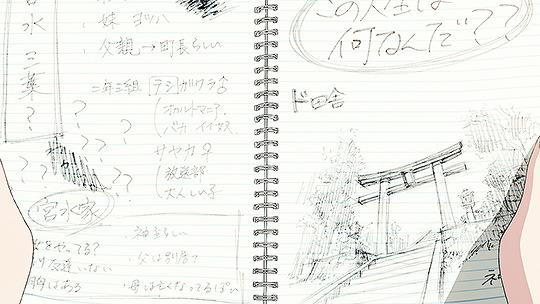 宮水三葉???
妹 ヨツハ
父親→町長らしい
二年三組
テシガワラ♂
オカルトマニア.
バカ イイ奴
サヤカ♀
放送部
大人しい子
?
??
??
宮水家
神社らしい
父は別居?
母は亡くなってるっぽい
巫女をやってる?
友達いない
この人生は
何なんだ??
ド田舎